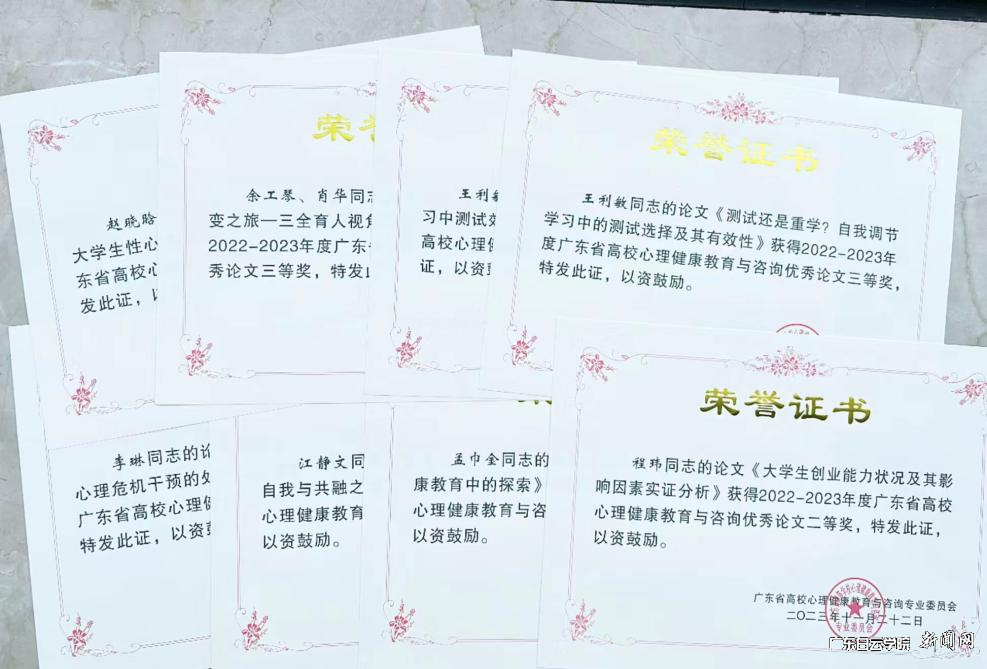 赵晓晗
大学生性心
东省高校心
发此证，以
荣
余工琴、肖华同志
变之旅—三全育人视角
2022-2023年度广东省
秀论文三等奖，特发此
王利敏
习中测试效
高校心理健
证，以资
荣誉证书
王利敏同志的论文《测试还是重学？自我调节
学习中的测试选择及其有效性》获得2022-2023年
度广东省高校心理健康教育与咨询优秀论文三等奖，
特发此证，以资鼓励。
李琳同志的论
心理危机干预的处
广东省高校心理健
特发此证，以资
江静文同
自我与共融之
心理健康教育
以资鼓励。
孟巾金同志的
康教育中的探索》
心理健康教育与咨
以资鼓励。
荣誉证书
程玮同志的论文《大学生创业能力状况及其影
响因素实证分析》获得2022-2023年度广东省高校
心理健康教育与咨询优秀论文二等奖，特发此证，
以资鼓励。
广东省高校心理健康教育与咨询专业委员会
二〇二三年十一月二十二日
专业委员会
广东白云学院 新闻网